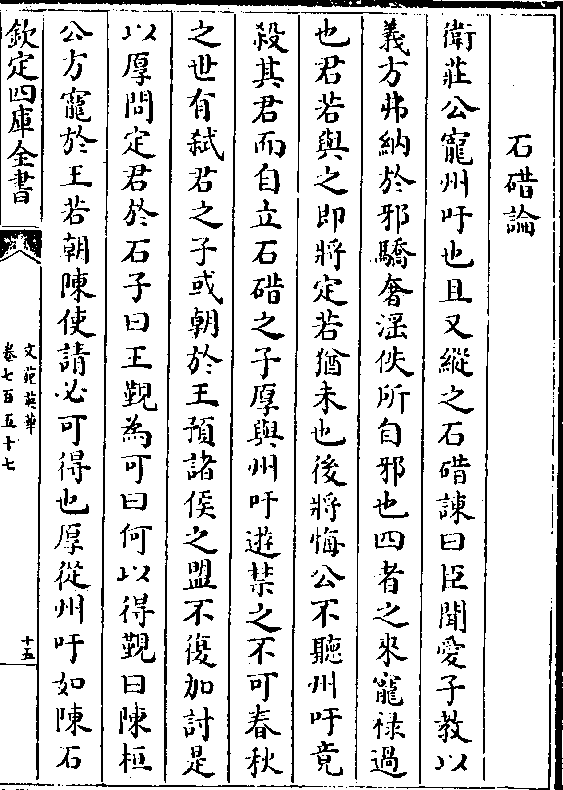 石碏論
衛莊公寵州吁也且又縱之石碏諫曰臣聞愛子教以
義方弗納於邪驕奢淫佚所自邪也四者之來寵祿過
也君若與之即將定若猶未也後將悔公不聽州吁竟
殺其君而自立石碏之子厚與州吁遊禁之不可春秋
之世有弑君之子或朝於王預諸侯之盟不復加討是
以厚問定君於石子曰王覲為可曰何以得覲曰陳桓
公方寵於王若朝陳使請必可得也厚從州吁如陳石
欽定四庫全書
文苑英華
卷七百五十七
十五